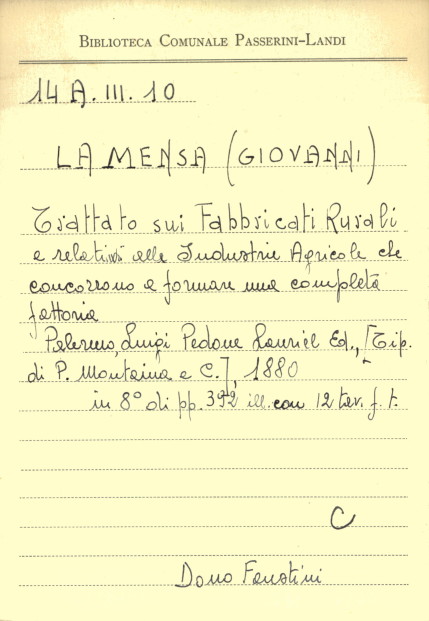 BIBLIOTECA COMUNALE PASSERINI-LANDI
14 A. III. 10
LA MENSA (GIOVANNI)
Trattato sui Fabbricati Rurali
e relativi alle Industrie Agricole che
concorrono a formare una completa
fattoria
Palermo, Luigi Pedone Lauriel Ed., [Tip.
di P. Montaina e C.], 1880
in 8° di pp. 392 ill. con 12 tav. f. t.
C
Dono Faustini